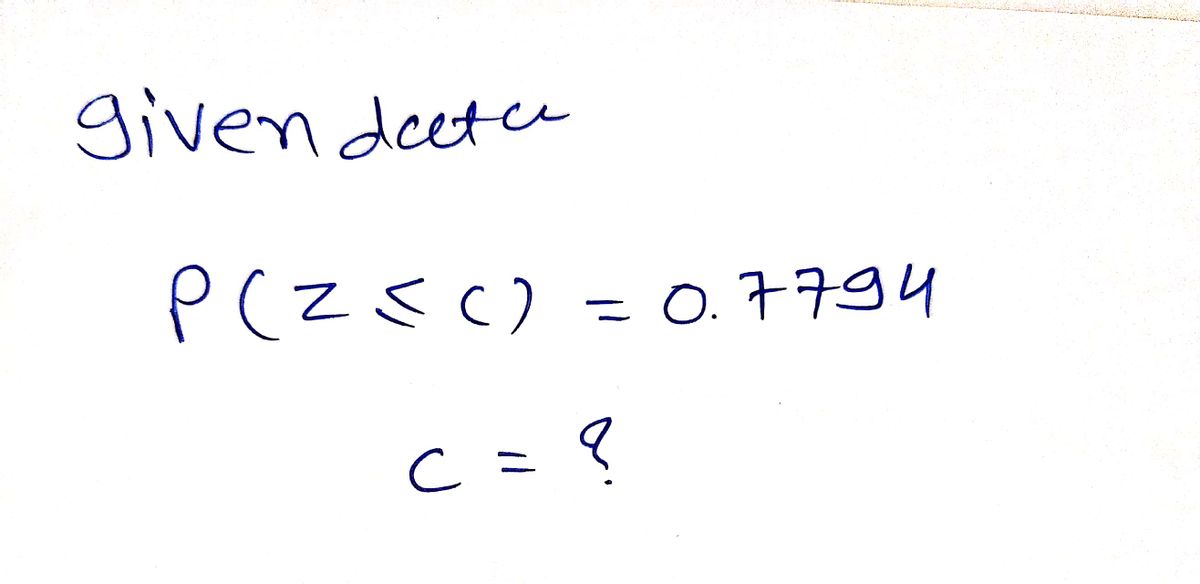 given data
P(Z ≤ C) = 0.7794
C = ?